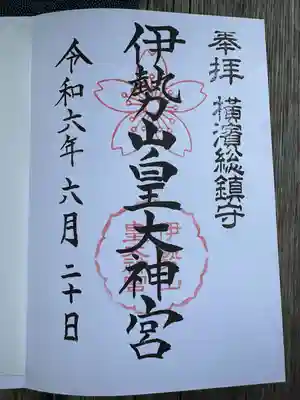 奉拝 横濱総鎮守
伊勢山皇大神宮
令和六年 六月 二十日